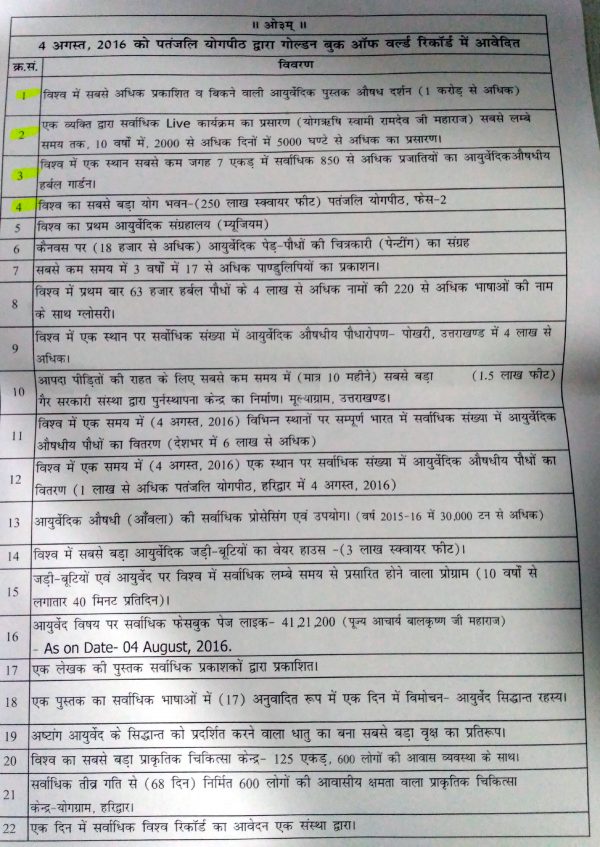 ॥ ओ३म् ॥
4 अगस्त, 2016 को पतंजलि योगपीठ द्वारा गोल्डन बुक ऑफ वर्ल्ड रिकॉर्ड में आवेदित
क्र.सं. विवरण
1 विश्व में सबसे अधिक प्रकाशित व बिकने वाली आयुर्वेदिक पुस्तक औषध दर्शन (1 करोड़ से अधिक)
2 एक व्यक्ति द्वारा सर्वाधिक Live कार्यक्रम का प्रसारण (योगऋषि स्वामी रामदेव जी महाराज) सबसे लम्बे
समय तक, 10 वर्षों में, 2000 से अधिक दिनों में 5000 घण्टे से अधिक का प्रसारण।
3 विश्व में एक स्थान सबसे कम जगह 7 एकड़ में सर्वाधिक 850 से अधिक प्रजातियों का आयुर्वेदिकऔषधीय
हर्बल गार्डन।
4 विश्व का सबसे बड़ा योग भवन-(250 लाख स्क्वायर फीट) पतंजलि योगपीठ, फेस-2
5 विश्व का प्रथम आयुर्वेदिक संग्रहालय (म्यूजियम)
6 कैनवस पर (18 हजार से अधिक) आयुर्वेदिक पेड़-पौधों की चित्रकारी (पेन्टींग) का संग्रह
7 सबसे कम समय में 3 वर्षों में 17 से अधिक पाण्डुलिपियों का प्रकाशन।
8 विश्व में प्रथम बार 63 हजार हर्बल पौधों के 4 लाख से अधिक नामों की 220 से अधिक भाषाओं की नाम
के साथ ग्लोसरी।
9 विश्व में एक स्थान पर सर्वाधिक संख्या में आयुर्वेदिक औषधीय पौधारोपण- पोखरी, उत्तराखण्ड में 4 लाख से
अधिक।
10 आपदा पीड़ितों की राहत के लिए सबसे कम समय में (मात्र 10 महीने) सबसे बड़ा (1.5 लाख फीट)
गैर सरकारी संस्था द्वारा पुर्नस्थापना केन्द्र का निर्माण। मूल्याग्राम, उत्तराखण्ड।
11 विश्व में एक समय में (4 अगस्त, 2016) विभिन्न स्थानों पर सम्पूर्ण भारत में सर्वाधिक संख्या में आयुर्वेदिक
औषधीय पौधों का वितरण (देशभर में 6 लाख से अधिक)
12 विश्व में एक समय में (4 अगस्त, 2016) एक स्थान पर सर्वाधिक संख्या में आयुर्वेदिक औषधीय पौधों का
वितरण (1 लाख से अधिक पतंजलि योगपीठ, हरिद्वार में 4 अगस्त, 2016)
13 आयुर्वेदिक औषधी (आँवला) की सर्वाधिक प्रोसेसिंग एवं उपयोग। (वर्ष 2015-16 में 30,000 टन से अधिक)
14 विश्व में सबसे बड़ा आयुर्वेदिक जड़ी-बूटियों का वेयर हाउस -(3 लाख स्क्वायर फीट)।
15 जड़ी-बूटियों एवं आयुर्वेद पर विश्व में सर्वाधिक लम्बे समय से प्रसारित होने वाला प्रोग्राम (10 वर्षों से
लगातार 40 मिनट प्रतिदिन)।
16 आयुर्वेद विषय पर सर्वाधिक फेसबुक पेज लाइक- 41,21,200 (पूज्य आचार्य बालकृष्ण जी महाराज)
- As on Date- 04 August, 2016.
17 एक लेखक की पुस्तक सर्वाधिक प्रकाशकों द्वारा प्रकाशित।
18 एक पुस्तक का सर्वाधिक भाषाओं में (17) अनुवादित रूप में एक दिन में विमोचन- आयुर्वेद सिद्धान्त रहस्य।
19 अष्टांग आयुर्वेद के सिद्धान्त को प्रदर्शित करने वाला धातु का बना सबसे बड़ा वृक्ष का प्रतिरूप।
20 विश्व का सबसे बड़ा प्राकृतिक चिकित्सा केन्द्र- 125 एकड़, 600 लोगों की आवास व्यवस्था के साथ।
21 सर्वाधिक तीव्र गति से (68 दिन) निर्मित 600 लोगों की आवासीय क्षमता वाला प्राकृतिक चिकित्सा
केन्द्र-योगग्राम, हरिद्वार।
22 एक दिन में सर्वाधिक विश्व रिकॉर्ड का आवेदन एक संस्था द्वारा।